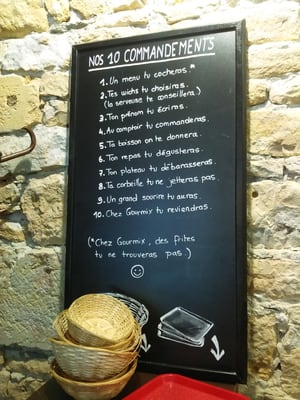 NOS 10 COMMANDEMENTS
1. Un menu tu cocheras.*
2. Tes wichs tu choisiras.
(la serveuse te conseillera)
3. Ton prénom tu écriras.
4. Au comptoir tu commanderas.
5. Ta boisson on te donnera.
6. Ton repas tu dégusteras.
7. Ton plateau tu débarasseras.
8. Ta corbeille tu ne jetteras pas.
9. Un grand sourire tu auras.
10. Chez Gourmix tu reviendras.
(*Chez Gourmix, des frites
tu ne trouveras pas.)